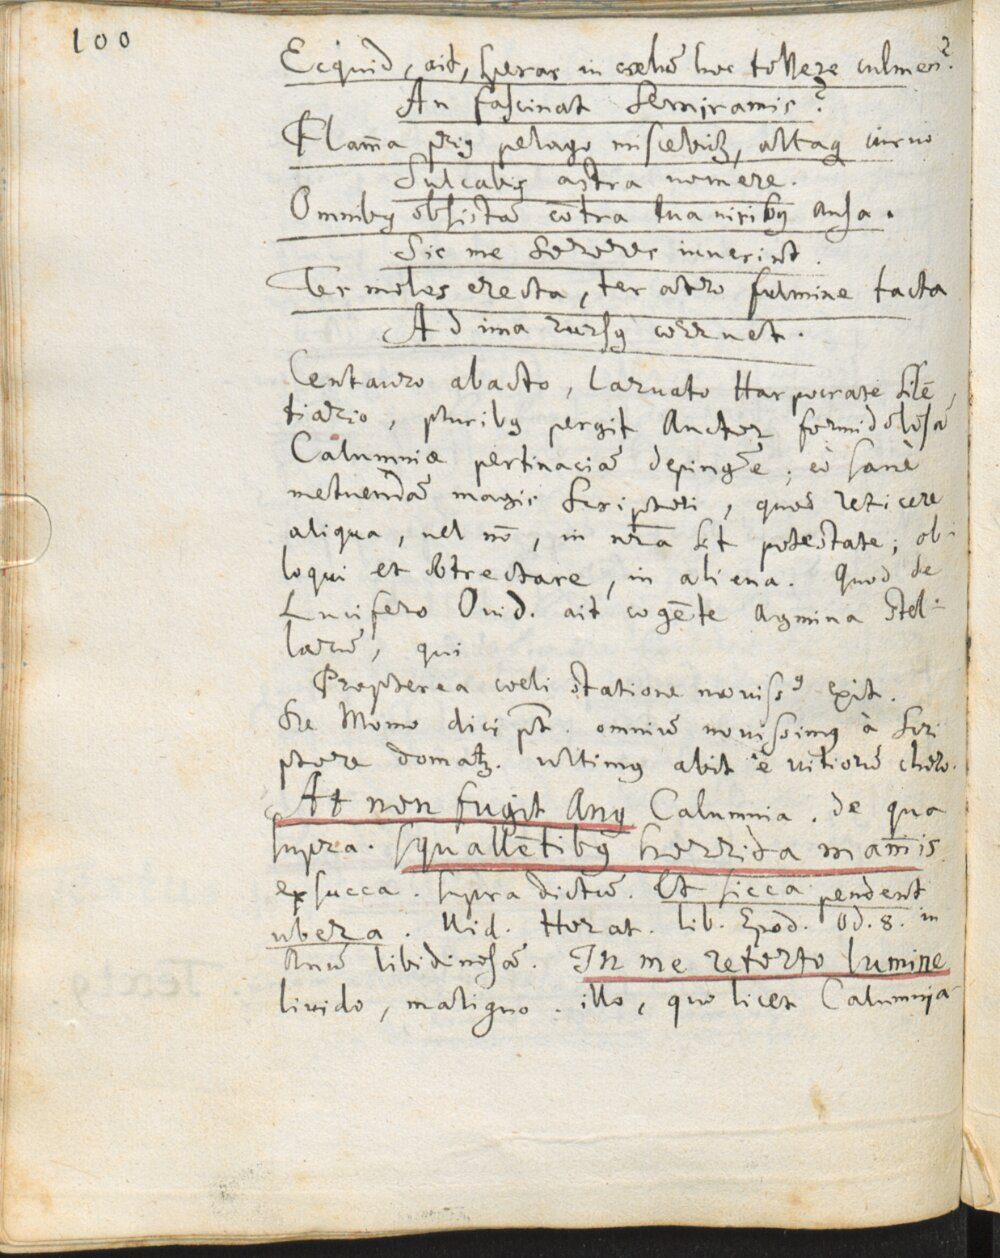 100
Ecquid, ait, speras in coelū hoc tollere culmen?
An fascinat Semiramis?
Flam̄a prig pelago miscebitꝫ, altaq curuo
Sulcabis astra vomere.
Omniby obsistā cōtra tua nisiby ausa.
Sic me Sorores iuuerint.
Ter moles erecta, ter atro fulmine tacta
Ad ima rursy corruet.
Centauro abacto, laruato Harpocrate silē
tiario, pluriby pergit Auctor formidolosā
Calumniæ pertinaciā depingēe; eò sanè
metuendā magis Scriptori, quod reticere
aliqua, uel nō, in nr̄a sit potestate; ob-
loqui et obtrectare, in aliena. Quod de
Lucifero Ouid. ait cogēte agmina stel-
larū, qui
Propterea coeli statione nouiss9 exit.
Sre Momo dici pt. omniū nouissimy à Scri
ptore domatꝫ. ultimy abit è uitiorū choro.
At non fugit Any Calumnia. de qua
supra. Squallētiby horrida mam̄is.
exsucca. supra dictū. Et sicca pendent
ubera. Uid. Horat. lib. Epod. Od. 8. in
Anū libidinosā. In me retorto lumine
liuido, maligno. illo, quo licet Calumnia